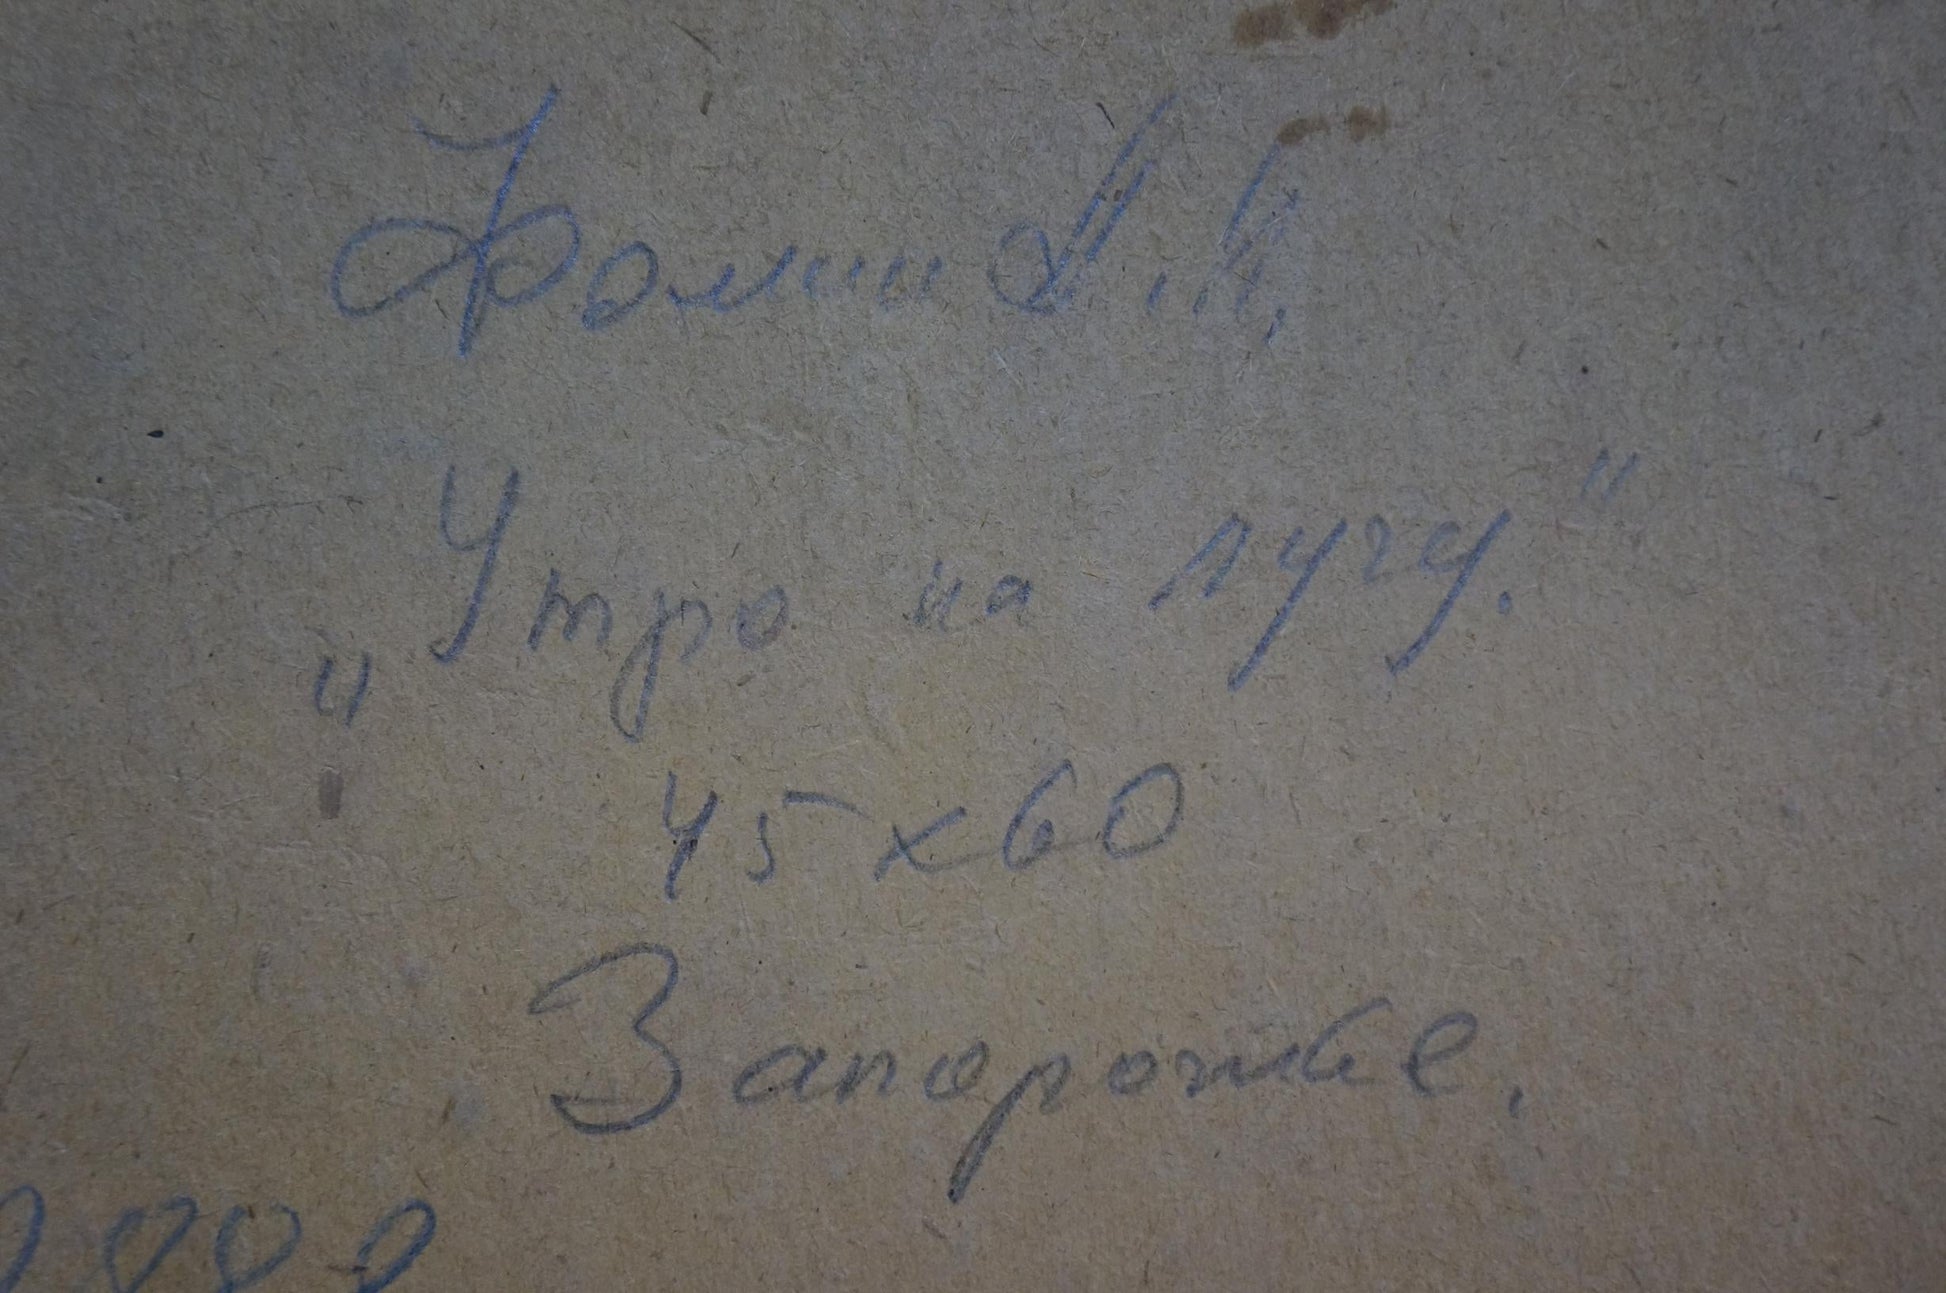 Фомин
„Утро на лугу."
45х60
Запорожье.